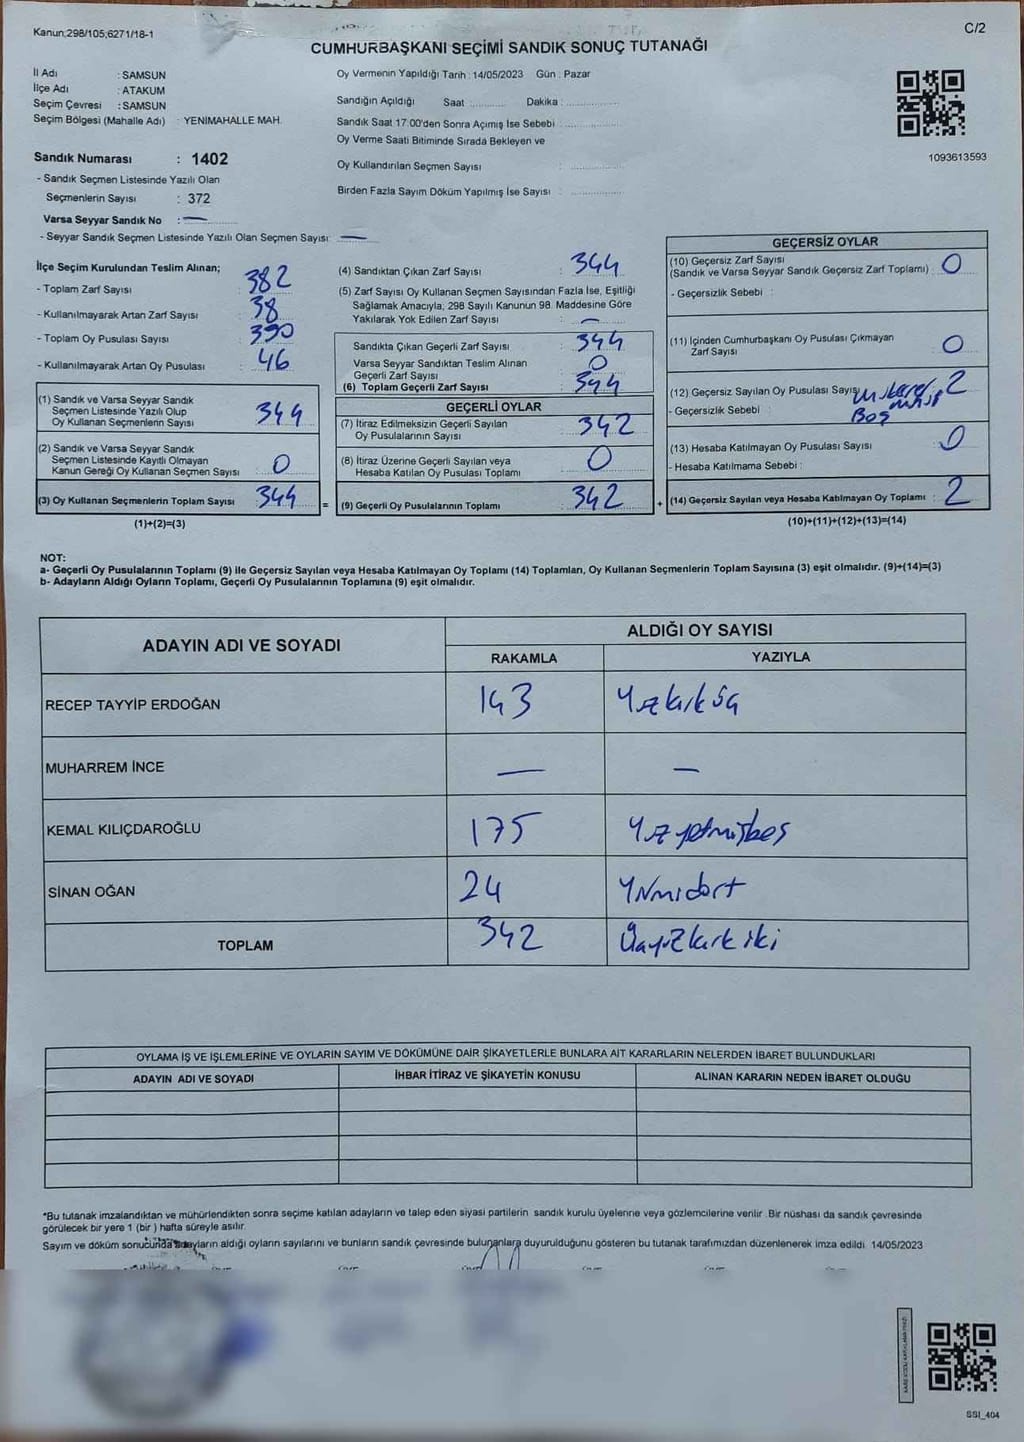 Kanun;298/105;6271/18-1
C/2
CUMHURBAŞKANI SEÇİMİ SANDIK SONUÇ TUTANAĞI
İl Adı : SAMSUN
İlçe Adı : ATAKUM
Seçim Çevresi : SAMSUN
Seçim Bölgesi (Mahalle Adı) : YENİMAHALLE MAH.
Sandık Numarası : 1402
- Sandık Seçmen Listesinde Yazılı Olan
Seçmenlerin Sayısı : 372
Varsa Seyyar Sandık No : —
- Seyyar Sandık Seçmen Listesinde Yazılı Olan Seçmen Sayısı: —
Oy Vermenin Yapıldığı Tarih : 14/05/2023 Gün : Pazar
Sandığın Açıldığı Saat ........... Dakika : ...............
Sandık Saat 17.00'den Sonra Açımış İse Sebebi : ...............
Oy Verme Saati Bitiminde Sırada Bekleyen ve
Oy Kullandırılan Seçmen Sayısı : ...............
Birden Fazla Sayım Döküm Yapılmış İse Sayısı : ...............
1093613593
İlçe Seçim Kurulundan Teslim Alınan;
- Toplam Zarf Sayısı : 382
- Kullanılmayarak Artan Zarf Sayısı : 38
- Toplam Oy Pusulası Sayısı : 390
- Kullanılmayarak Artan Oy Pusulası : 46
(1) Sandık ve Varsa Seyyar Sandık
Seçmen Listesinde Yazılı Olup
Oy Kullanan Seçmenlerin Sayısı : 344
(2) Sandık ve Varsa Seyyar Sandık
Seçmen Listesinde Kayıtlı Olmayan
Kanun Gereği Oy Kullanan Seçmen Sayısı : 0
(3) Oy Kullanan Seçmenlerin Toplam Sayısı : 344
(1)+(2)=(3)
=
(4) Sandıktan Çıkan Zarf Sayısı : 344
(5) Zarf Sayısı Oy Kullanan Seçmen Sayısından Fazla İse, Eşitliği
Sağlamak Amacıyla, 298 Sayılı Kanunun 98. Maddesine Göre
Yakılarak Yok Edilen Zarf Sayısı : —
Sandıkta Çıkan Geçerli Zarf Sayısı : 344
Varsa Seyyar Sandıktan Teslim Alınan
Geçerli Zarf Sayısı : 0
(6) Toplam Geçerli Zarf Sayısı : 344
GEÇERLİ OYLAR
(7) İtiraz Edilmeksizin Geçerli Sayılan
Oy Pusulalarının Sayısı : 342
(8) İtiraz Üzerine Geçerli Sayılan veya
Hesaba Katılan Oy Pusulası Toplamı : 0
(9) Geçerli Oy Pusulalarının Toplamı : 342
+
GEÇERSİZ OYLAR
(10) Geçersiz Zarf Sayısı
(Sandık ve Varsa Seyyar Sandık Geçersiz Zarf Toplamı) : 0
- Geçersizlik Sebebi :
(11) İçinden Cumhurbaşkanı Oy Pusulası Çıkmayan
Zarf Sayısı : 0
(12) Geçersiz Sayılan Oy Pusulası Sayısı 2
- Geçersizlik Sebebi : Boş
(13) Hesaba Katılmayan Oy Pusulası Sayısı : 0
- Hesaba Katılmama Sebebi :
(14) Geçersiz Sayılan veya Hesaba Katılmayan Oy Toplamı : 2
(10)+(11)+(12)+(13)=(14)
NOT:
a- Geçerli Oy Pusulalarının Toplamı (9) ile Geçersiz Sayılan veya Hesaba Katılmayan Oy Toplamı (14) Toplamları, Oy Kullanan Seçmenlerin Toplam Sayısına (3) eşit olmalıdır. (9)+(14)=(3)
b- Adayların Aldığı Oyların Toplamı, Geçerli Oy Pusulalarının Toplamına (9) eşit olmalıdır.
ADAYIN ADI VE SOYADI
ALDIĞI OY SAYISI
RAKAMLA YAZIYLA
RECEP TAYYİP ERDOĞAN 143 Yüzkırküç
MUHARREM İNCE — —
KEMAL KILIÇDAROĞLU 175 Yüzyetmişbeş
SİNAN OĞAN 24 Yirmidört
TOPLAM 342 Üçyüzkırkiki
OYLAMA İŞ VE İŞLEMLERİNE VE OYLARIN SAYIM VE DÖKÜMÜNE DAİR ŞİKAYETLERLE BUNLARA AİT KARARLARIN NELERDEN İBARET BULUNDUKLARI
ADAYIN ADI VE SOYADI İHBAR İTİRAZ VE ŞİKAYETİN KONUSU ALINAN KARARIN NEDEN İBARET OLDUĞU
*Bu tutanak imzalandıktan ve mühürlendikten sonra seçime katılan adayların ve talep eden siyasi partilerin sandık kurulu üyelerine veya gözlemcilerine verilir. Bir nüshası da sandık çevresinde
görülecek bir yere 1 (bir ) hafta süreyle asılır.
Sayım ve döküm sonucunda adayların aldığı oyların sayılarını ve bunların sandık çevresinde bulunanlara duyurulduğunu gösteren bu tutanak tarafımızdan düzenlenerek imza edildi. 14/05/2023
SSI_404